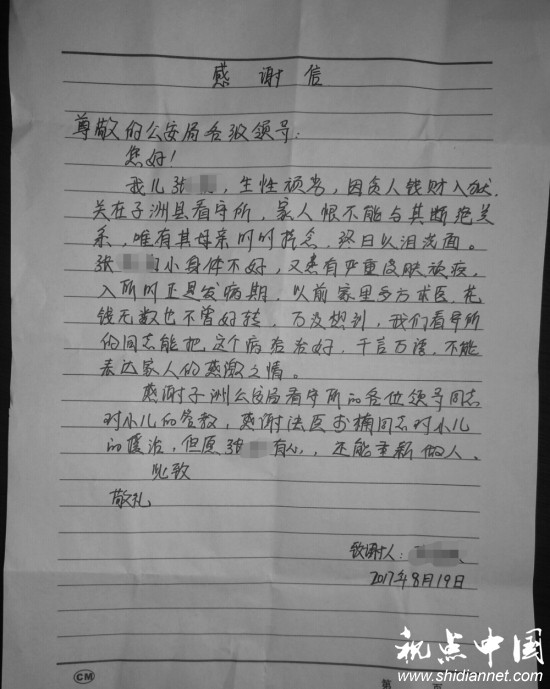 感谢信
尊敬的公安局各级领导:
您好!
我儿张 ,生性顽劣,因贪人钱财入狱,
关在子洲县看守所,家人恨不能与其断绝关
系,唯有其母亲时时挂念,终日以泪洗面。
张 自小身体不好,又患有严重皮肤顽疾,
入所时正是发病期,以前家里多方求医,花
钱无数也不曾好转,万没想到,我们看守所
的同志能把这个病给治好,千言万语,不能
表达家人的感激之情。
感谢子洲公安局看守所的各位领导同志
对小儿的管教,感谢法医 楠同志对小儿
的医治,但愿张 有心,还能重新做人。
此致
敬礼
致谢人:
2017年8月19日
视点中国
www.shidiannet.com
CM
第 页